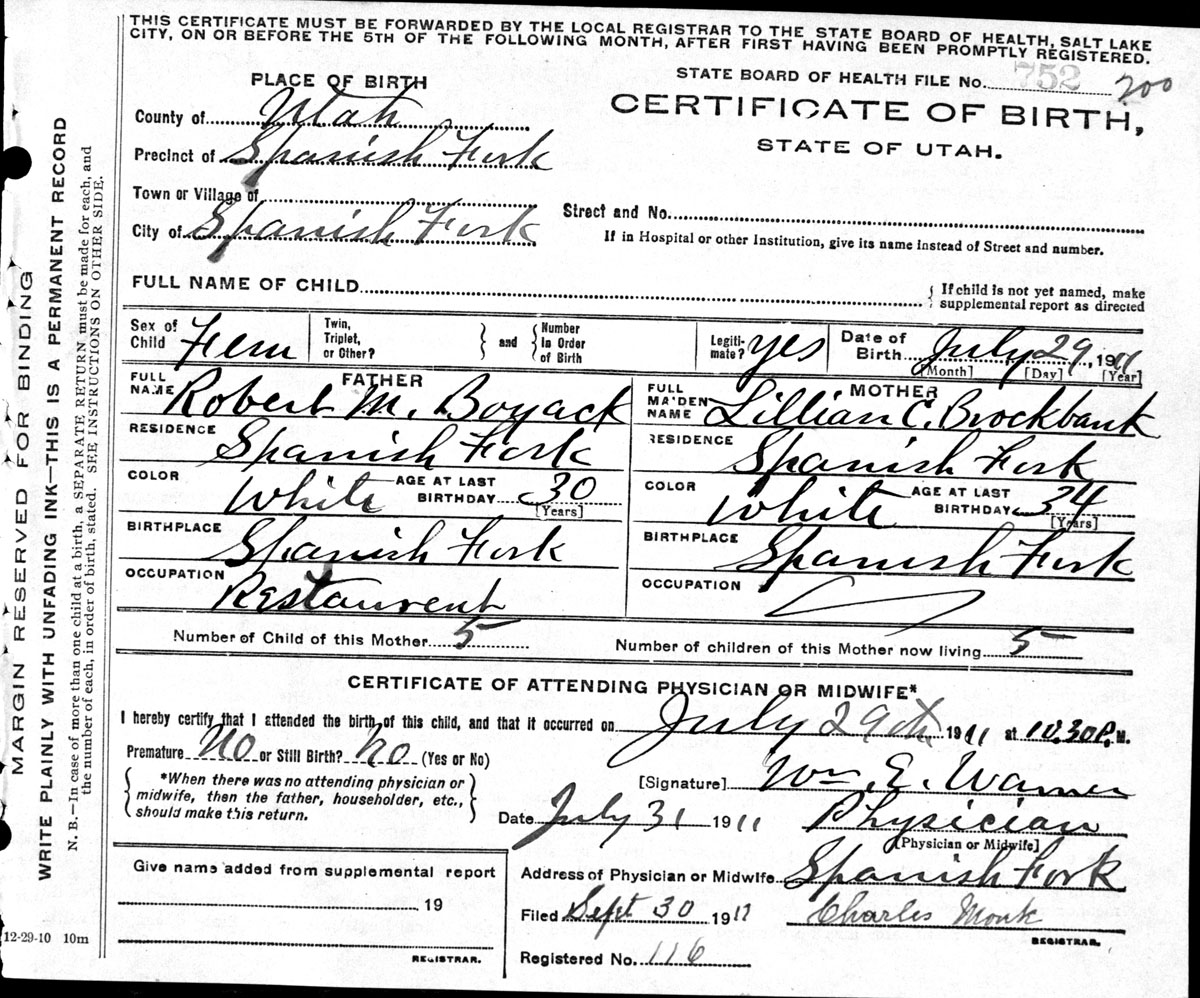 THIS CERTIFICATE MUST BE FORWARDED BY THE LOCAL REGISTRAR TO THE STATE BOARD OF HEALTH, SALT LAKE
CITY, ON OR BEFORE THE 5TH OF THE FOLLOWING MONTH, AFTER FIRST HAVING BEEN PROMPTLY REGISTERED.
PLACE OF BIRTH
STATE BOARD OF HEALTH FILE No. 752 200
CERTIFICATE OF BIRTH,
STATE OF UTAH.
County of Utah
Precinct of Spanish Fork
Town or Village of
City of Spanish Fork
Street and No.
If in Hospital or other Institution, give its name instead of Street and number.
FULL NAME OF CHILD
{ If child is not yet named, make
supplemental report as directed
Sex of Child Fem
Twin, Triplet, or Other? } and { Number In Order of Birth
Legiti-mate? yes
Date of Birth July 29, 1911
[Month] [Day] [Year]
FATHER
FULL NAME Robert M. Boyack
RESIDENCE Spanish Fork
COLOR White AGE AT LAST BIRTHDAY 30
[Years]
BIRTHPLACE Spanish Fork
OCCUPATION Restaurent
MOTHER
FULL MAIDEN NAME Lillian C. Brockbank
RESIDENCE Spanish Fork
COLOR White AGE AT LAST BIRTHDAY 34
[Years]
BIRTHPLACE Spanish Fork
OCCUPATION
Number of Child of this Mother 5
Number of children of this Mother now living 5
CERTIFICATE OF ATTENDING PHYSICIAN OR MIDWIFE*
I hereby certify that I attended the birth of this child, and that it occurred on July 29th 1911 at 10.30 P. M.
Premature No or Still Birth? No (Yes or No)
{ *When there was no attending physician or
midwife, then the father, householder, etc.,
should make this return. }
[Signature] Wm. E. Warner
Date July 31 1911 Physician
[Physician or Midwife]
Address of Physician or Midwife Spanish Fork
Filed Sept 30 1911 Charles Monk
REGISTRAR.
Registered No. 116
Give name added from supplemental report
19
REGISTRAR.
12-29-10 10m
MARGIN RESERVED FOR BINDING
WRITE PLAINLY WITH UNFADING INK—THIS IS A PERMANENT RECORD
N. B.—In case of more than one child at a birth, a SEPARATE RETURN must be made for each, and
the number of each, in order of birth, stated. SEE INSTRUCTIONS ON OTHER SIDE.